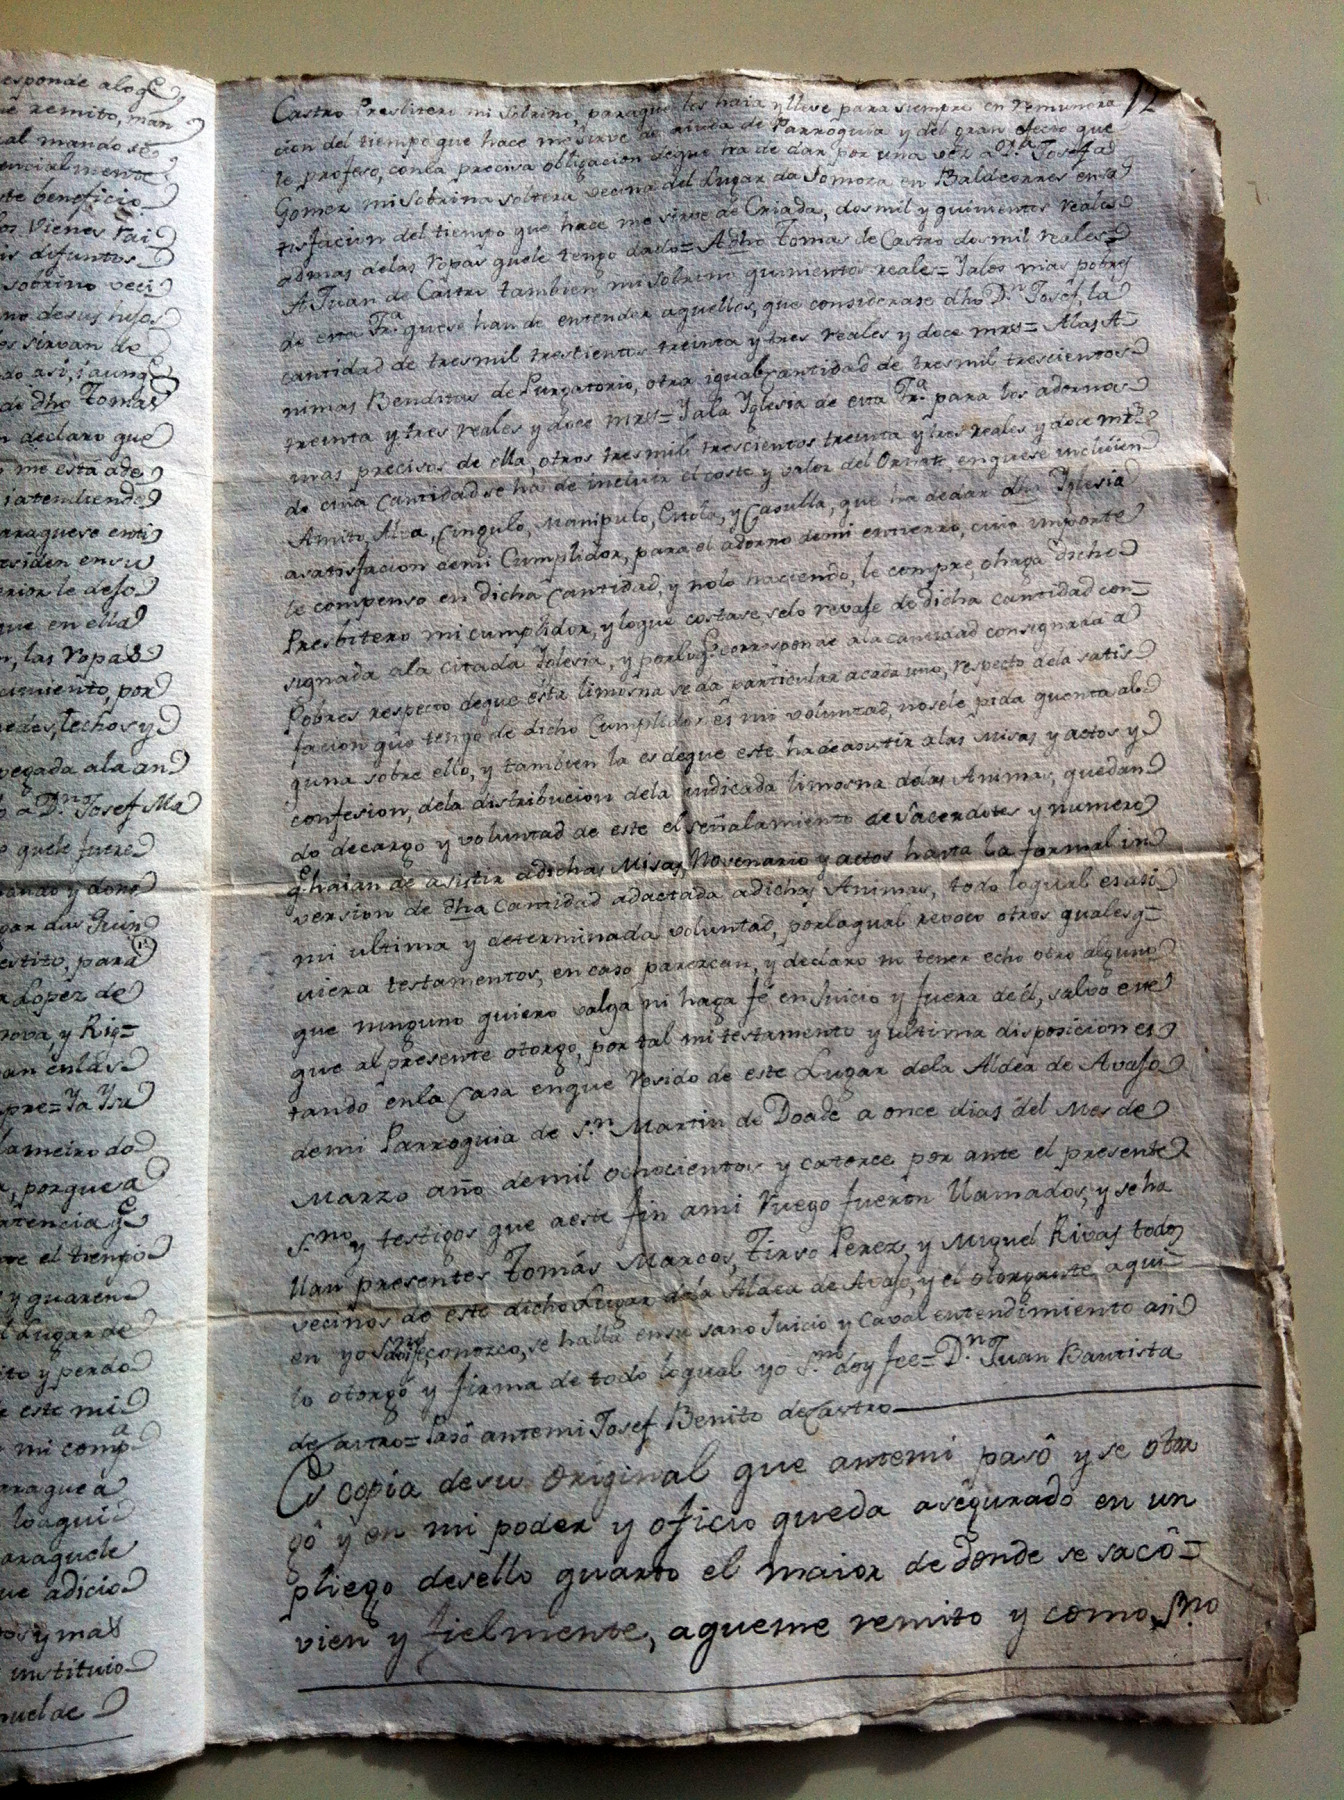 12
Castro Presbitero mi Sobrino, paraque los haia y lleve para siempre en remunera
cion del tiempo que hace me sirve de aiuda de Parroquia y del gran efecto que
le profeso, con la precisa obligacion deque ha de dar por una vez a D.ª Josefa
Gomez mi sobrina soltera vecina del Lugar da Somoza en Baldeorres en sa
tisfacion del tiempo que hace me sirve de Criada, dos mil y quinientos reales
admas delas ropas quele tengo dado= A dho Tomas de Castro dos mil reales=
A Juan de Castro tambien mi sobrino quinientos reales= Jalos mas pobres
de esta Fr.ª quese han de entender aquellos, que considerase dho D.n Josef, la
cantidad de tresmil trescientos treinta y tres reales y doce mrs= Alas A=
nimas Benditas de Purgatorio, otra igual cantidad de tresmil trescientos
treinta y tres reales y doce mrs= Jala Yglesia de esta Fr.ª para los adornos
mas precisos de ella, otros tresmil trescientos treinta y tres reales y doce mrs
de cuia Cantidad se ha de incluir el coste y valor del Ornato en quese incluien
Amito, Alva, Cingulo, Manipulo, Estola, y Casulla, que ha dedar dha Yglesia
asatisfacion demi Cumplidor, para el adorno demi entierro, cuio importe
le compenso en dicha Cantidad, y nolo haciendo, le compre, ohaga dicho
Presbitero mi cumplidor, y loque costase, selo revaje de dicha cantidad con=
signada ala citada Yglesia, y porloq.e corresponde ala cantidad consignada a
Pobres respecto deque esta limosna se da particular acada uno, respecto dela satis
facion que tengo de dicho Cumplidor es mi voluntad, nosele pida quenta al
guna sobre ello, y tambien la es deque este ha deasistir alas Misas y actos y
confesion, dela distribucion dela indicada limosna delas Animas, quedan
do decargo y voluntad de este el señalamiento de Sacerdotes y numero
q.e haian de asistir adichas Misas, Novenario y actos hasta la formal in
version de dha Cantidad adactada adichas Animas, todo loqual es asi
mi ultima y determinada voluntad, porlaqual revoco otros qualesq=
uiera testamentos, en caso parezcan, y declaro no tener echo otro alguno
que ninguno quiero valga ni haga fe en Juicio y fuera de el, salvo este
que al presente otorgo, por tal mi testamento y ultima disposicion es
tando enla Casa enque resido de este Lugar dela Aldea de Avajo
demi Parroquia de S.n Martin de Doade a once dias del Mes de
Marzo año demil ochocientos y catorce por ante el presente
S.no y testigos que aeste fin ami ruego fueron llamados, y se ha
llan presentes Tomás Marcos, Tirso Perez, y Miguel Rivas todos
vecinos de este dicho Lugar dela Aldea de Avajo, y el otorgante aqui
en yo S.no doi fe, conozco, se halla ensu sano Juicio y Caval entendimiento asi
lo otorgó y firma de todo loqual yo S.no doy fee= D.n Juan Bautista
de Castro= Pasó antemi Josef Benito de Castro
Es copia desu original que antemi pasô y se otor
gô y en mi poder y oficio queda asegurado en un
pliego desello quarto el maior de donde se sacô=
vien y fielmente, aqueme remito y como S.no
esponde aloq.e
e remito, man
al mando se
encialmente
ste beneficio
is difuntos
sobrino veci
no desus hijos
es sirvan de
do asi, i aunq.e
di dho Tomas
n declaro que
me esta ade
i atendiendo
araquese enti
siden en su
erior le dejo
que en ella
n, las ropas
cimiento, por
edes, techos y
pegada ala an
a D.n Josef Ma
quele fuere
ando y dono
gar das Quin
estito, para
a Lopez de
rova y Rig=
an en las
pre= Ja Ysa
lameiro do
, porque a
atencia q.e
ve el tiempo
y guaren
l Lugar de
ito y perdo
e este mi
mi comp.ª
araque a
loaqui
araquele
ue adicio
os y mas
instituio
nuel de